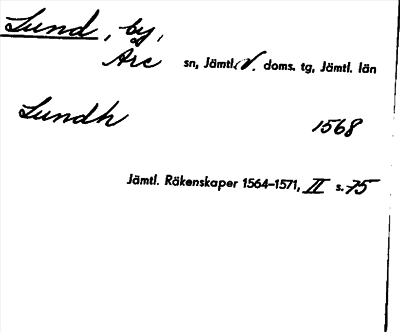 Lund, by,
Åre sn, Jämtl. V. doms. tg, Jämtl. län
Lundh 1568
Jämtl. Räkenskaper 1564-1571, II s. 75